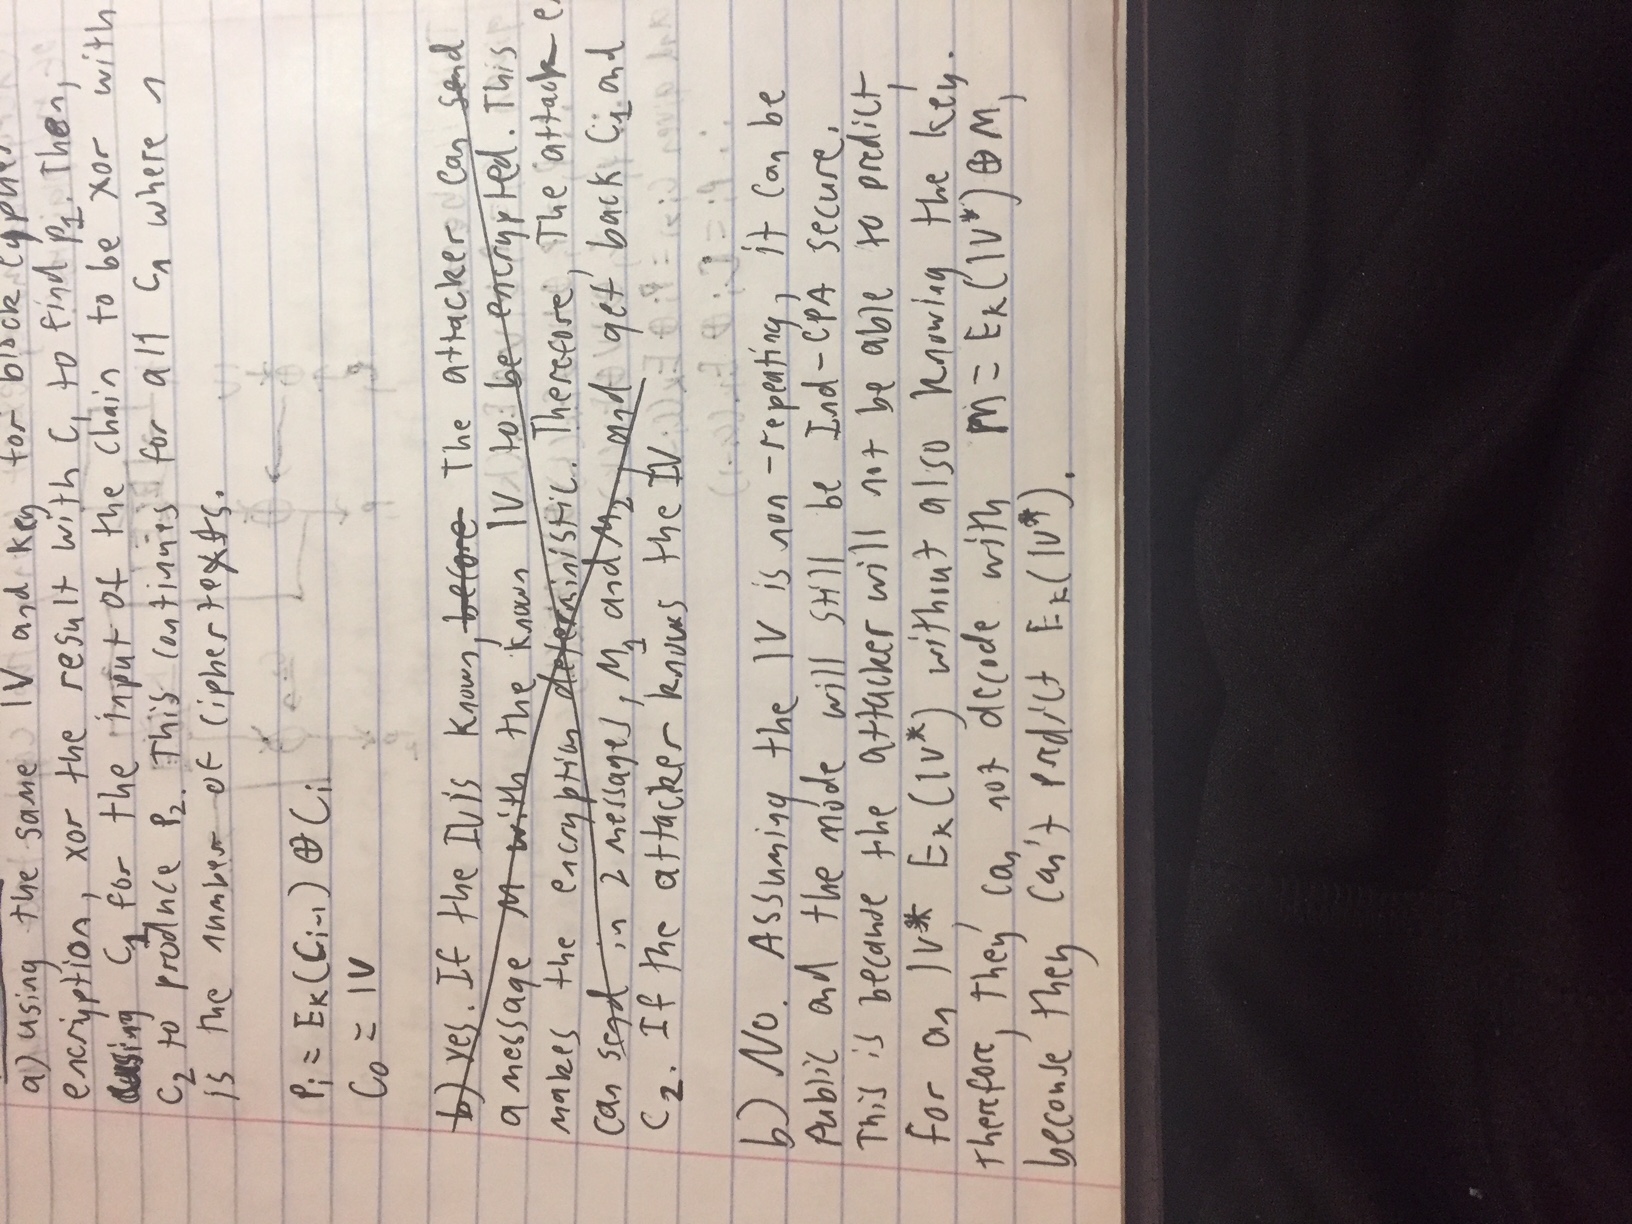 a) using the same IV and key for block cypher
encryption, xor the result with C₁ to find P₁. Then,
using C₁ for the input of the chain to be xor with
C₂ to produce P₂. This continues for all Cₙ where n
is the number of ciphertexts.
Pᵢ = Eₖ(Cᵢ₋₁) ⊕ Cᵢ
C₀ = IV
b) Yes. If the IV is known, before The attacker can send
a message M with the known IV to be encrypted. This
makes the encryption deterministic. Therefore, The attacke
can send in 2 messages, M₁ and M₂, and get back C₁ and
C₂. If the attacker knows the IV
b) No. Assuming the IV is non-repeating, it can be
Public and the mode will still be Ind-CPA secure.
This is because the attacker will not be able to predict,
for an IV*, Eₖ(IV*) without also knowing the key.
therefore, they can not decode with M = Eₖ(IV*) ⊕ M,
because they can't predict Eₖ(IV*).